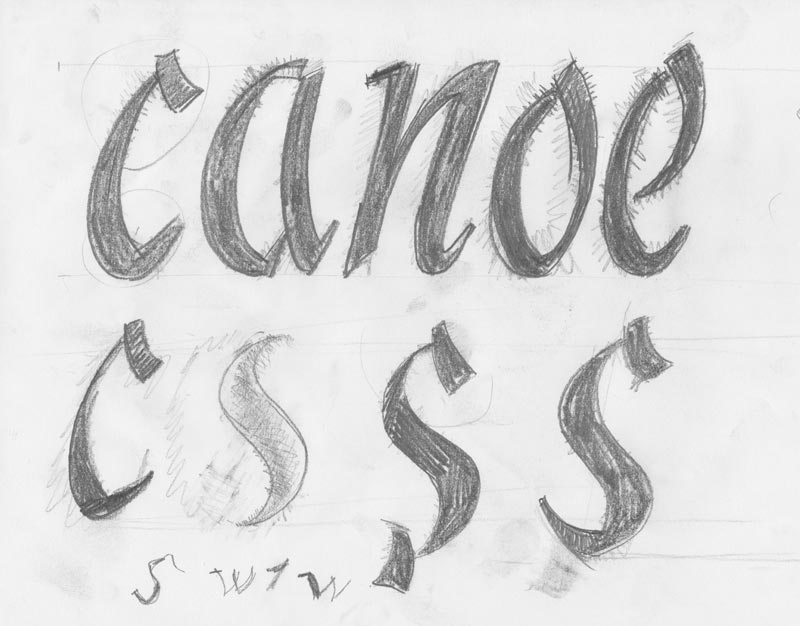 canoe
c s s s
s w